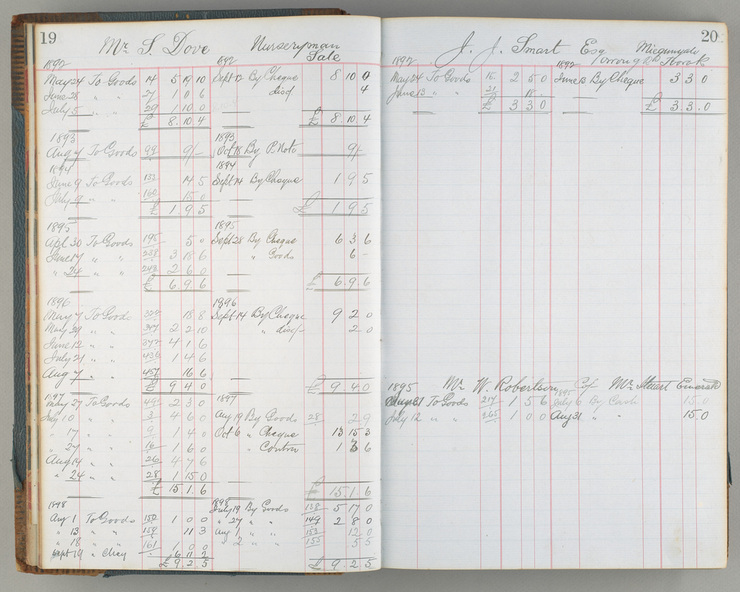 19
Mr. S. Dove Nurseryman
Sale
1892 1892
May 24 To Goods 14 5 19 10 Sept 12 By Cheque 8 10 0
June 28 " " 27 1 0 6 disct 4
July 5 " " 1 10 0
£ 8. 10. 4 £ 8. 10. 4
1893 1893
Aug 4 To Goods 9/- Oct 18 By P. Note 9/-
1894 1894
June 9 To Goods 14 5 Sept 14 By Cheque 1 9 5
July 15 0
£ 1. 9. 5 £ 1. 9. 5
1895 1895
Apl 30 To Goods 195 5 0 Sept 28 By Cheque 6 3 6
June 17 " " 3 18 6 " Goods 6 -
" 24 " " 243 2 6 0
£ 6. 9. 6 £ 6. 9. 6
1896 1896
May 7 To Goods 18 8 Sept 14 By Cheque 9 2 0
May 29 " " 2 2 10 " disct 2 0
June 12 " " 4 1 6
July 21 " " 1 4 6
Aug 7 16 6
£ 9 4 0 £ 9. 4. 0
1897 1897
27 To Goods 2 3 0
July 10 " " 3 4 6 0 Aug 19 By Goods 28 2 9
" 17 " " 1 4 0 Oct 6 " Cheque 13 15 3
" 27 " " 1 6 0 " Contra 1 3 6
Aug 14 " " 26 4 7 6
" 24 " " 28 1 15 0
£ 15. 1. 6 £ 15. 1. 6
1898 1898
Aug 1 To Goods 1 0 0 July 19 By Goods 138 5 17 0
" 13 " " 159 11 3 " 27 " " 144 2 8 0
" 18 " " 161 1 0 0 Aug 1 " " 12 0
Sept 19 " Cheq 6 11 2 " 2 " " 155 5 5
£ 9. 2. 5 £ 9. 2. 5
20
J. J. Smart Esq
1892 1892
May 24 To Goods 15 2 5 0 June By Cheque 3 3 0
June 13 " " 18 -
£ 3 3 0 £ 3 3. 0
1895 Mr W. Robertson Mr Stuart
To Goods 217 1 5 6 July 6 By Cash 15 0
July 12 " " 265 1 0 0 Aug 31 " " 15. 0